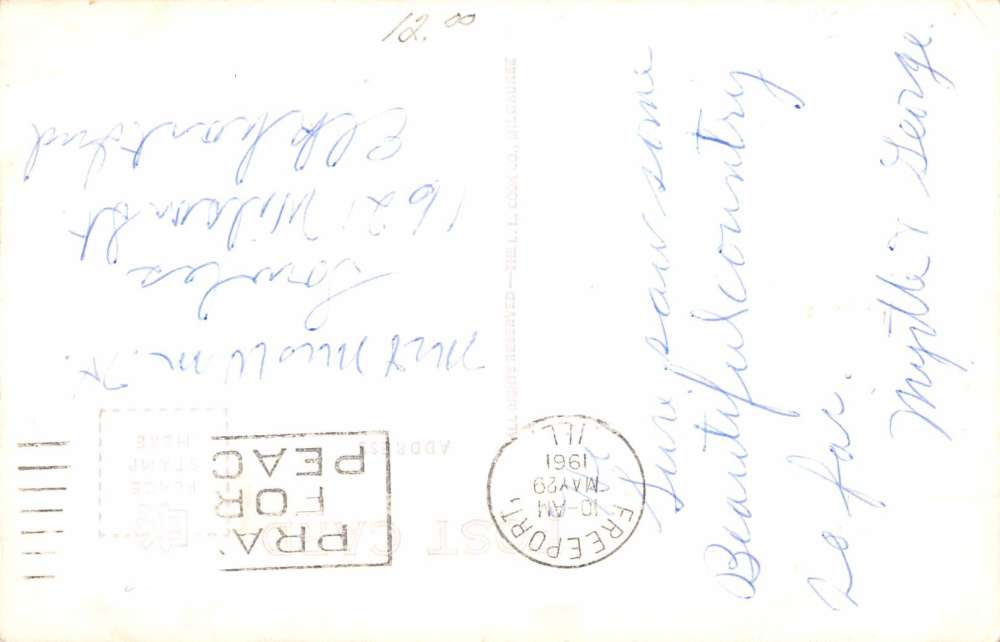 12.00
POST CARD
ADDRESS
PLACE
STAMP
HERE
FREEPORT,
10-AM
MAY29
1961
ILL.
PRAY
FOR
PEAC
Mr & Mrs Wm H.
1621 Wilson St
Elkhart Ind
Sure saw some
Beautiful country
so far.
Myrtle & George.
ALL RIGHTS RESERVED—THE L. L. COOK CO., MILWAUKEE